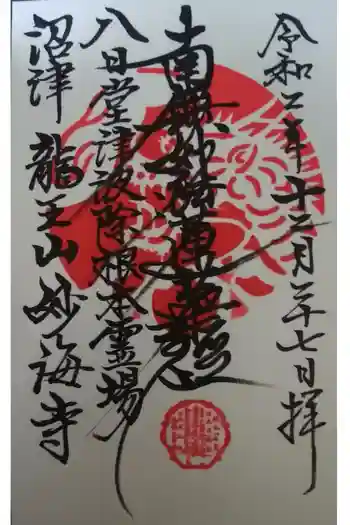 令和二年十二月二十七日拝
南無妙法蓮華経
八日堂津波除根本霊場
沼津 龍王山 妙海寺